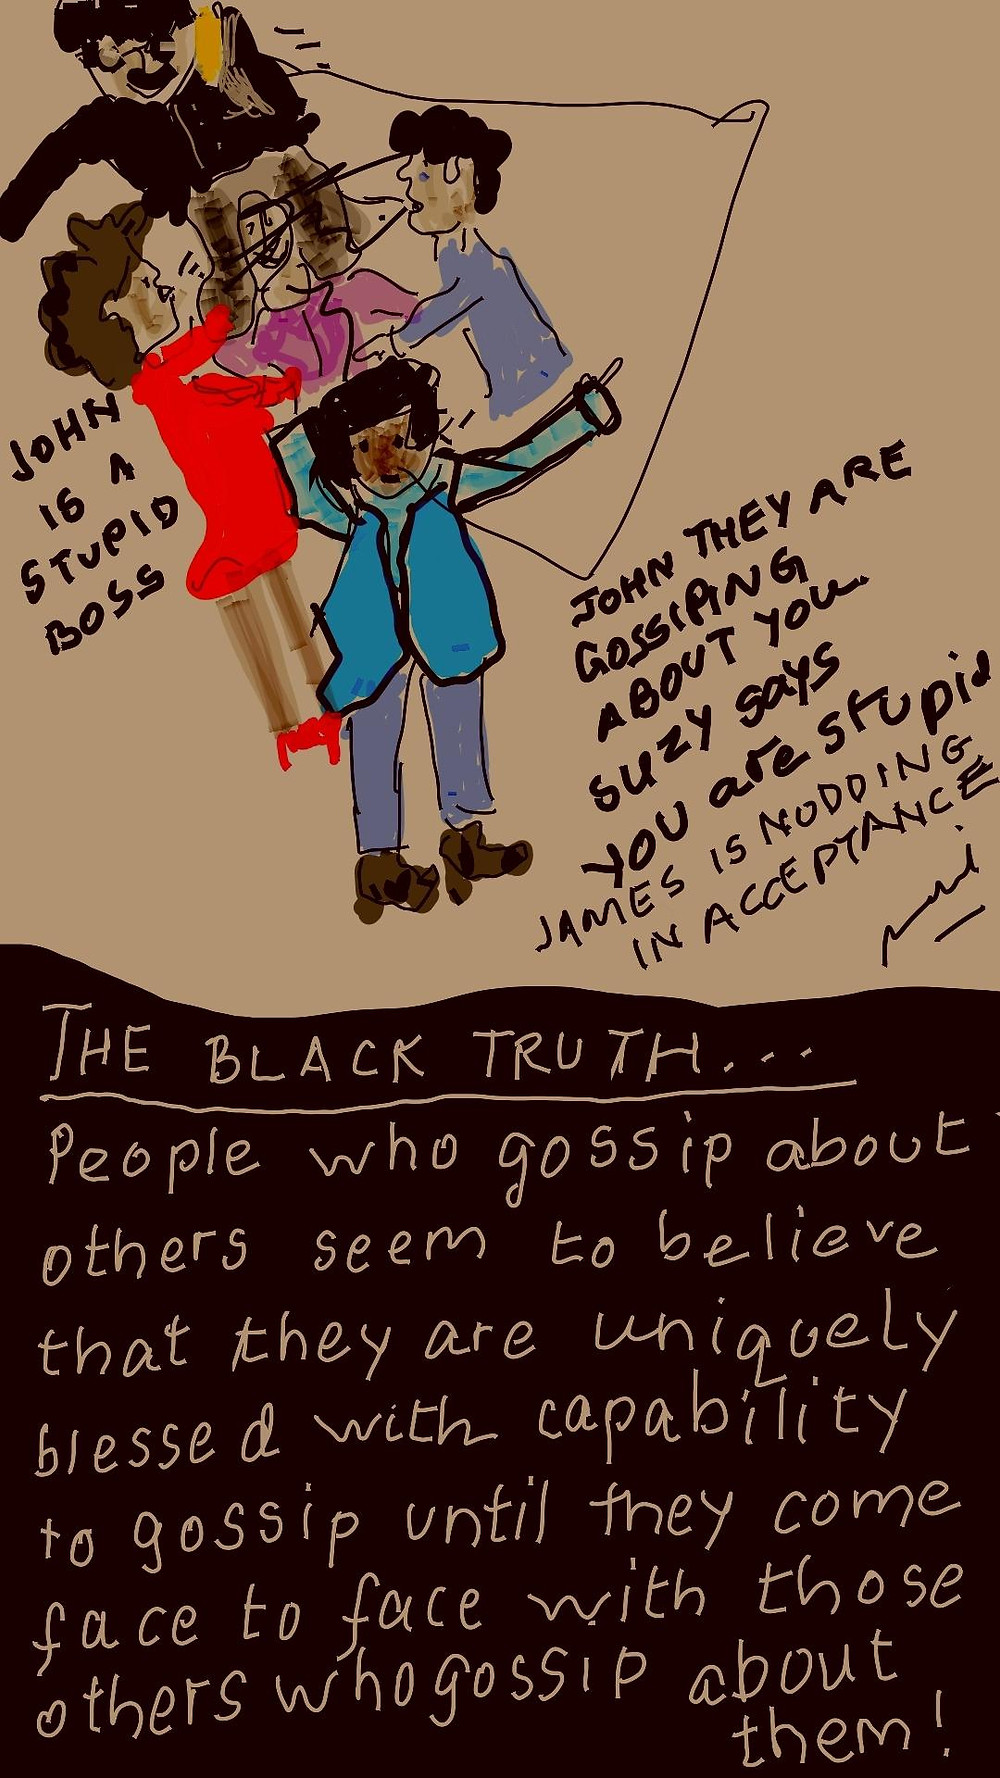 JOHN
IS A
STUPID
BOSS
JOHN THEY ARE
GOSSIPING
ABOUT YOU.
SUZY says
YOU are stupid
JAMES IS NODDING
IN ACCEPTANCE
THE BLACK TRUTH...
People who gossip about
others seem to believe
that they are uniquely
blessed with capability
to gossip until they come
face to face with those
others who gossip about
them!